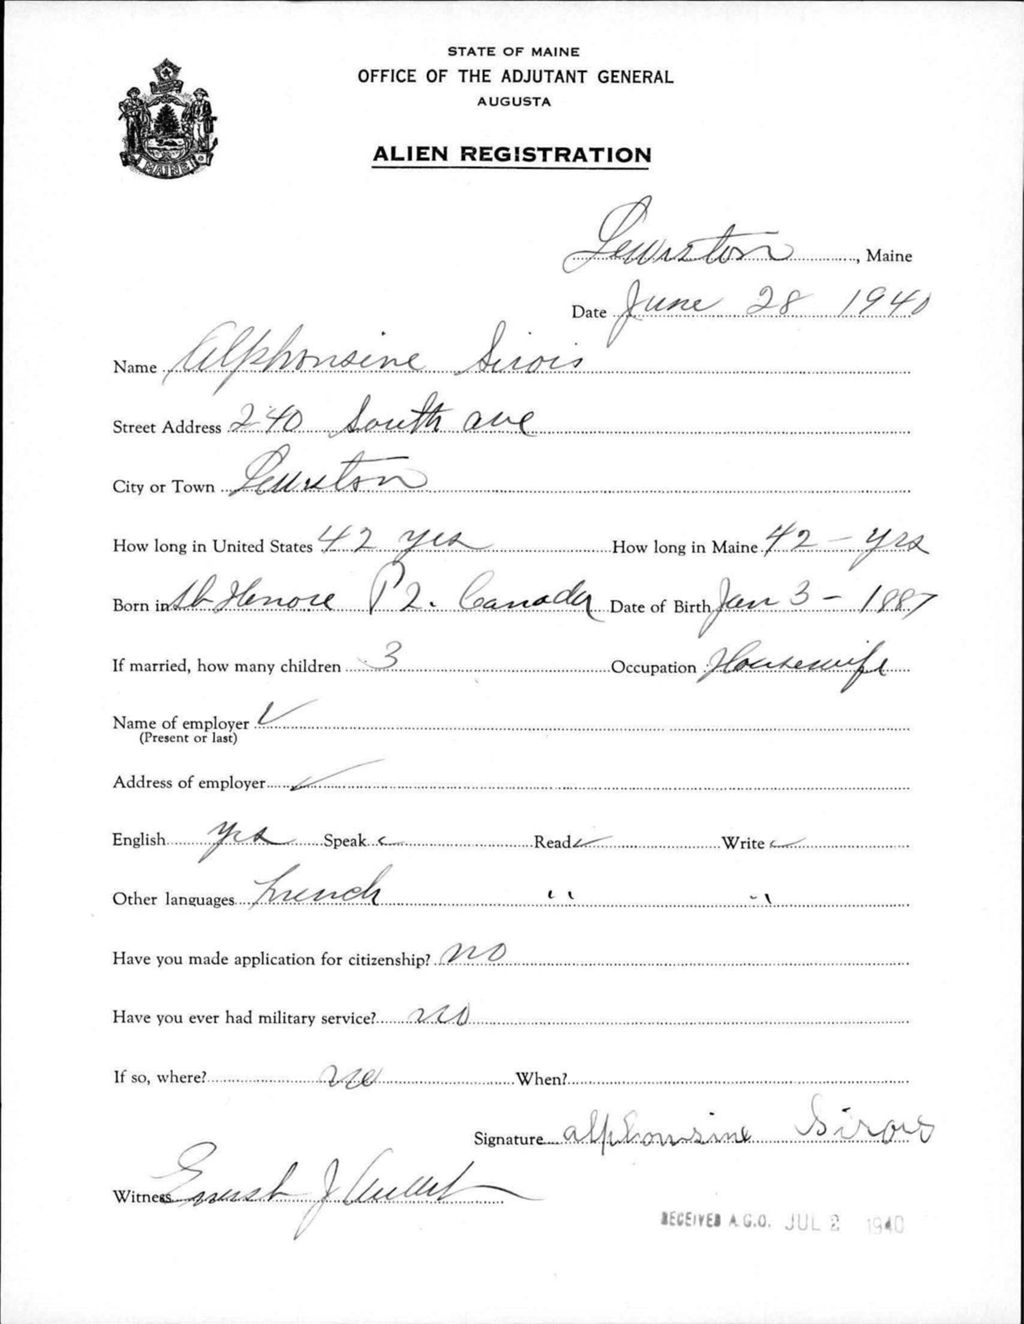 STATE OF MAINE
OFFICE OF THE ADJUTANT GENERAL
AUGUSTA
ALIEN REGISTRATION
MAINE
Lewiston, Maine
Date June 28 1940
Name Alphonsine Sirois
Street Address 240 South ave
City or Town Lewiston
How long in United States 42 yrs How long in Maine 42 - yrs
Born in St Honore P2. Canada Date of Birth Jan 3 - 1887
If married, how many children 3 Occupation Housewife
Name of employer ✓
(Present or last)
Address of employer ✓
English yes Speak ✓ Read ✓ Write ✓
Other languages french " "
Have you made application for citizenship? no
Have you ever had military service? no
If so, where? no When?
Signature alphonsine Sirois
Witness Ernest J Ouellet
RECEIVED A.G.O. JUL 2 1940